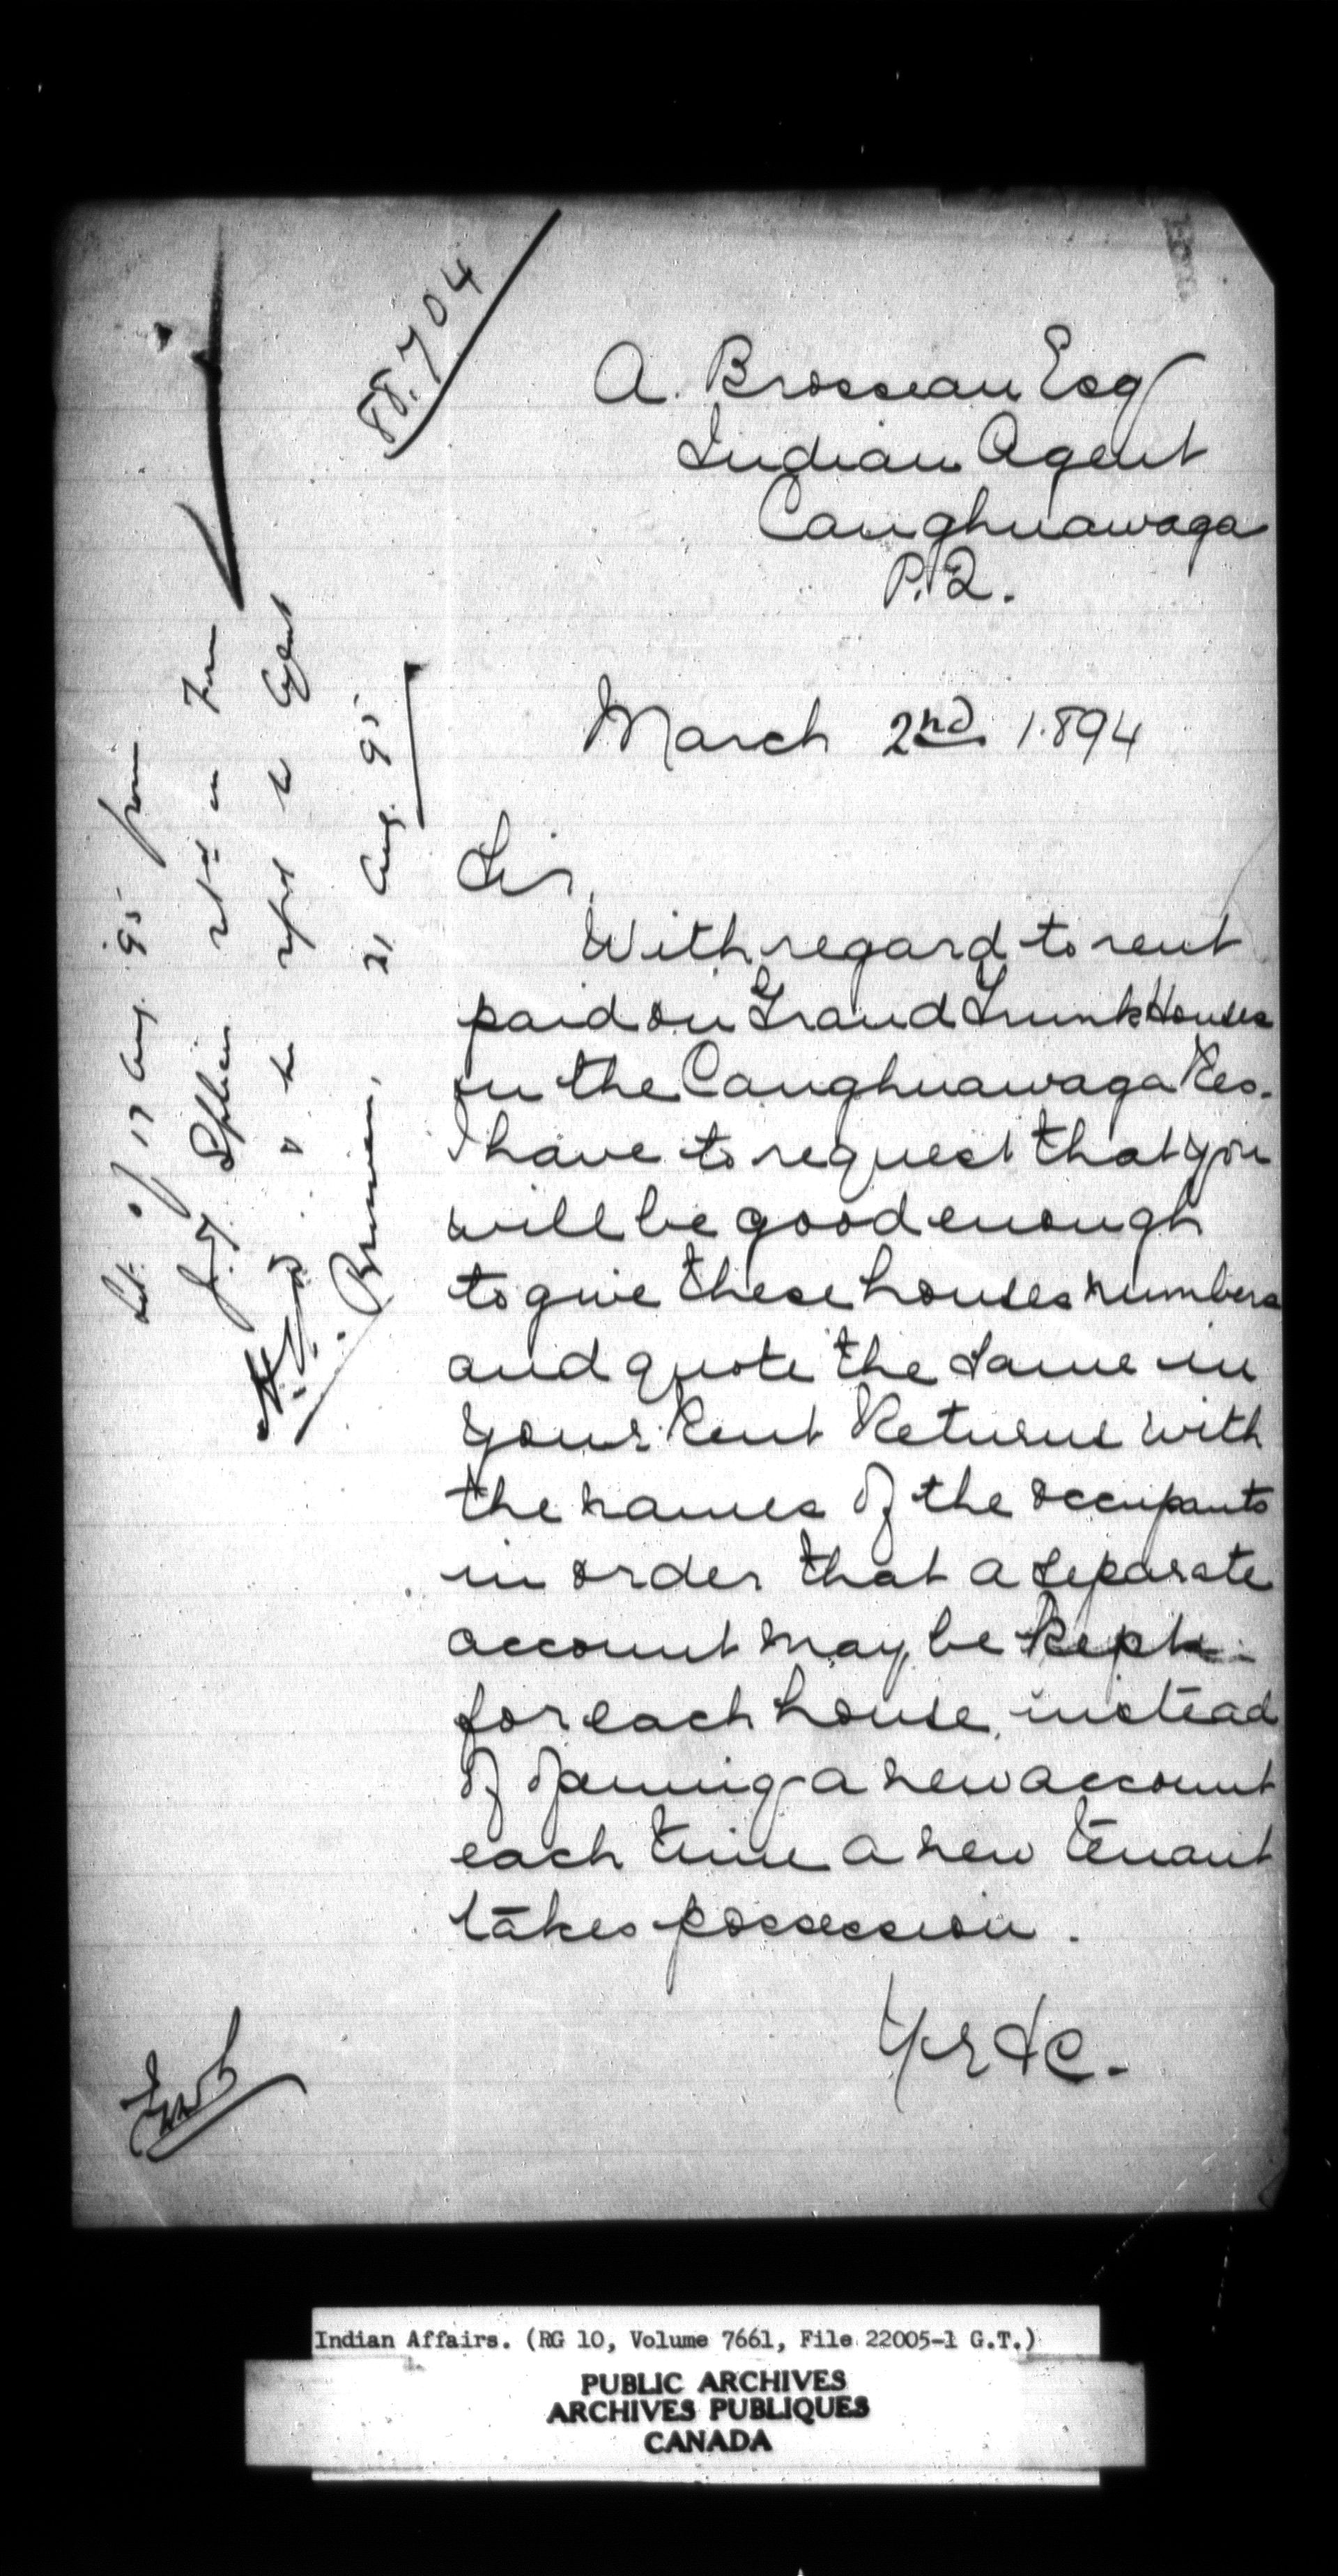 88.704
A. Brosseau Esq
Indian Agent
Caughnawaga
P.Q.
March 2nd 1894
Sir,
With regard to rent
paid on Grand Trunk Houses
in the Caughnawaga Res.
I have to request that you
will be good enough
to give these houses numbers
and quote the same in
your Rent Returns with
the names of the occupants
in order that a separate
account may be kept
for each house, instead
of opening a new account
each time a new tenant
takes possession.
Yrs &c.
Let. of 17 Aug. 95 from
to Agent
21 Aug. 95
Indian Affairs. (RG 10, Volume 7661, File 22005-1 G.T.)
PUBLIC ARCHIVES
ARCHIVES PUBLIQUES
CANADA